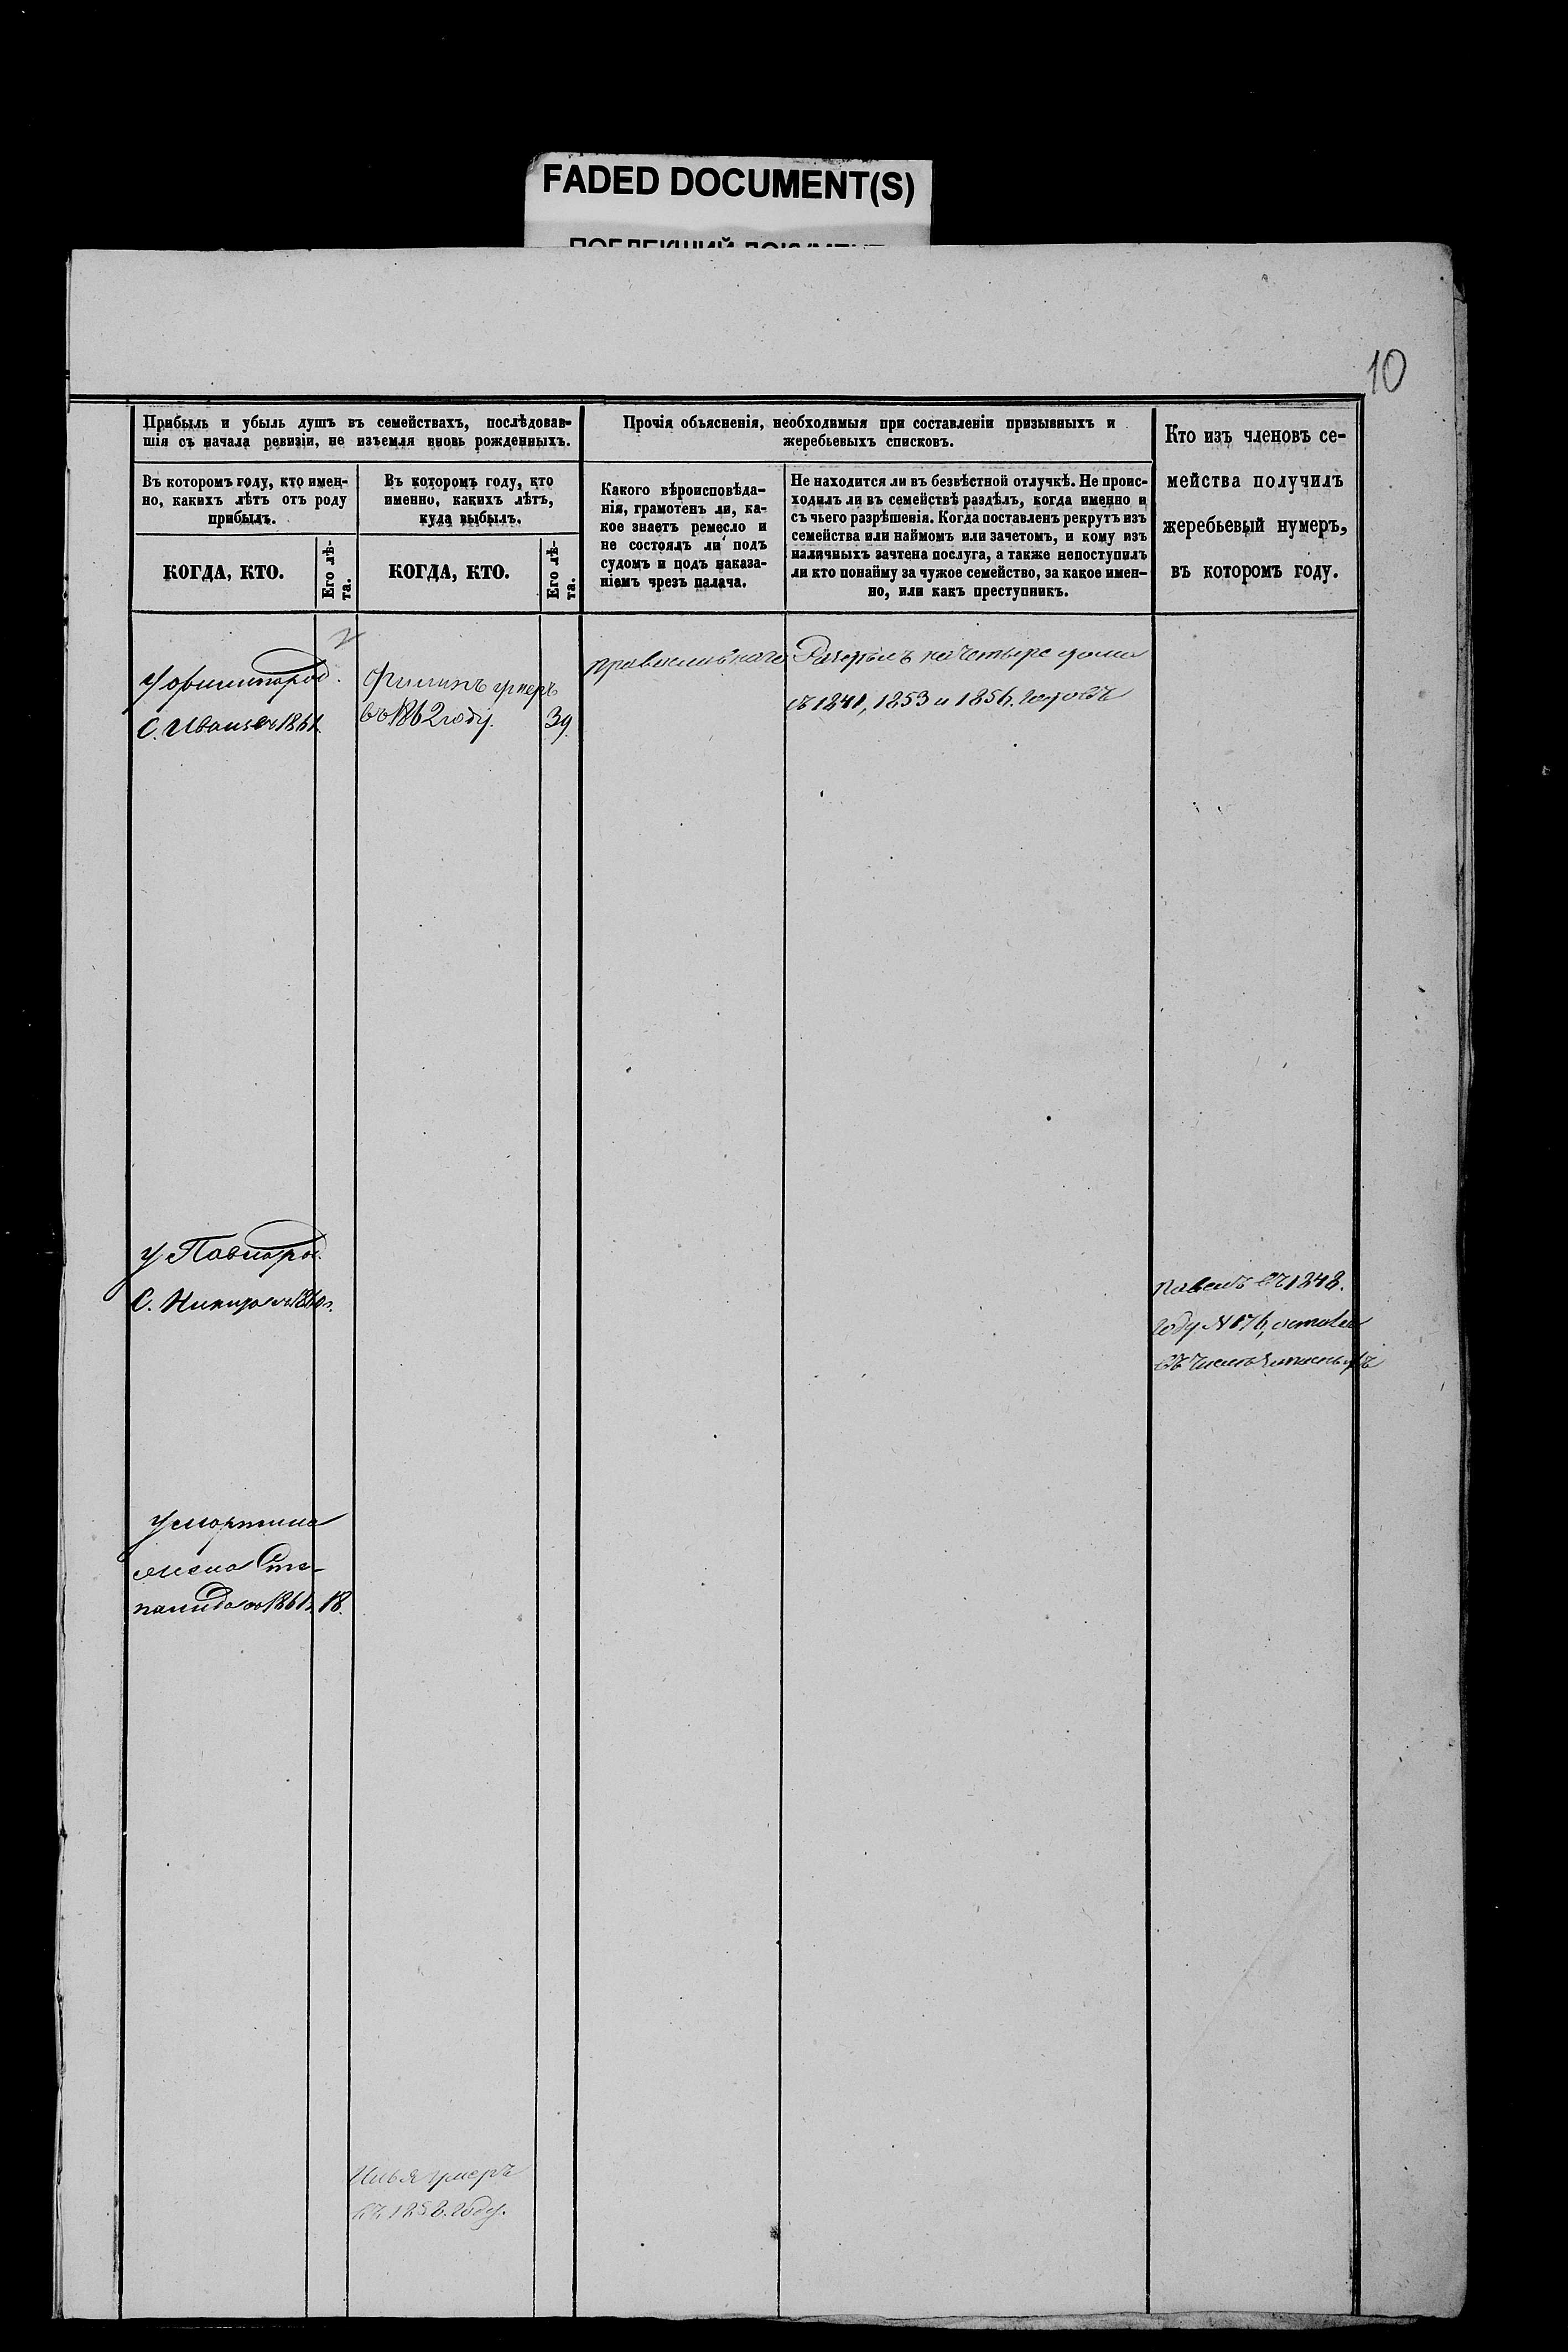 FADED DOCUMENT(S)
ПОБЛЕКШИЙ ДОКУМЕНТ
10
Прибыль и убыль душъ въ семействахъ, послѣдовав-
шія съ начала ревизіи, не изъемля вновь рожденныхъ.
Въ которомъ году, кто имен-
но, какихъ лѣтъ отъ роду
прибылъ.
КОГДА, КТО.
Его лѣ-
та.
Въ которомъ году, кто
именно, какихъ лѣтъ,
куда выбылъ.
КОГДА, КТО.
Его лѣ-
та.
Прочія объясненія, необходимыя при составленіи призывныхъ и
жеребьевыхъ списковъ.
Какого вѣроисповѣда-
нія, грамотенъ ли, ка-
кое знаетъ ремесло и
не состоялъ ли подъ
судомъ и подъ наказа-
ніемъ чрезъ палача.
Не находится ли въ безвѣстной отлучкѣ. Не проис-
ходилъ ли въ семействѣ раздѣлъ, когда именно и
съ чьего разрѣшенія. Когда поставленъ рекрутъ изъ
семейства или наймомъ или зачетомъ, и кому изъ
наличныхъ зачтена послуга, а также непоступилъ
ли кто понайму за чужое семейство, за какое имен-
но, или какъ преступникъ.
Кто изъ членовъ се-
мейства получилъ
жеребьевый нумеръ,
въ которомъ году.
У Филипа род.
С. Иванъ въ 1861
Филипъ умеръ
въ 1862 году.
39.
православнаго
Раздѣлъ на четыре дома
съ 1841, 1853 и 1856. годовъ
У Павла род.
С. 1860 г.
Павелъ въ 1848.
году N 176,
въ числѣ
жена Сте-
панида въ 1861 г. 18.
Илья умеръ
въ 1858. году.